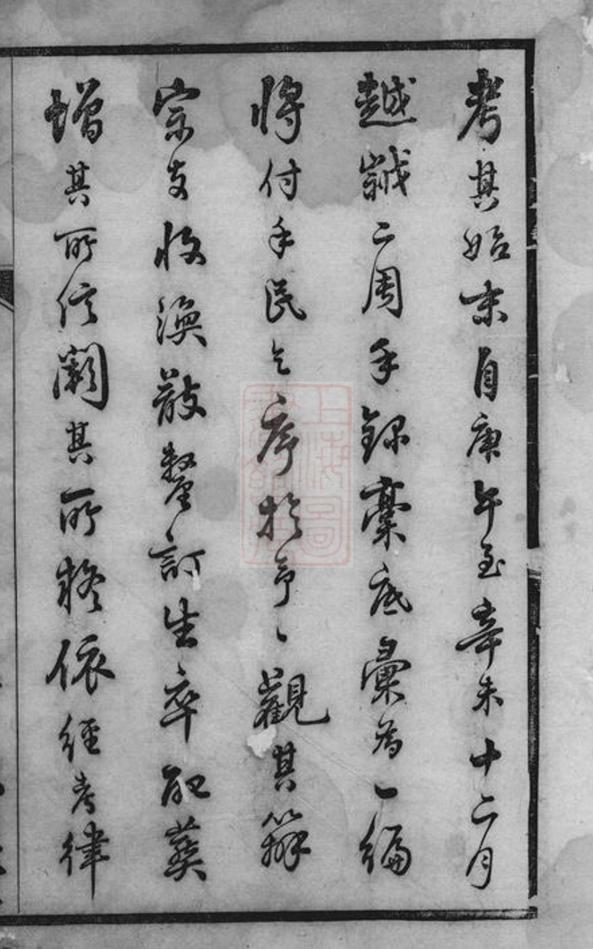 考其始末自庚午至辛未十二月
越歲二周手錄藁底彙為一編
將付手民乞序於予予觀其辯
宗支收渙散釐訂生卒配葵
增其所信闕其所疑依經考律